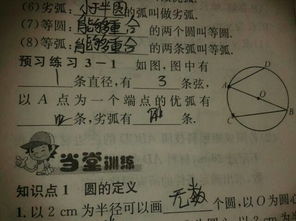 (6)劣弧:小于半圆的弧叫做劣弧.
(7)等圆:能够重合的两个圆叫等圆.
(8)等弧:能够重合的两个弧叫等弧.
预习练习3-1 如图,图中有
1条直径,有3条弦,
以A点为一个端点的优弧有
条,劣弧有条.
A
B
C
D
O
当堂训练
知识点1 圆的定义
1.以2cm为半径可以画无数个圆,以O为圆心